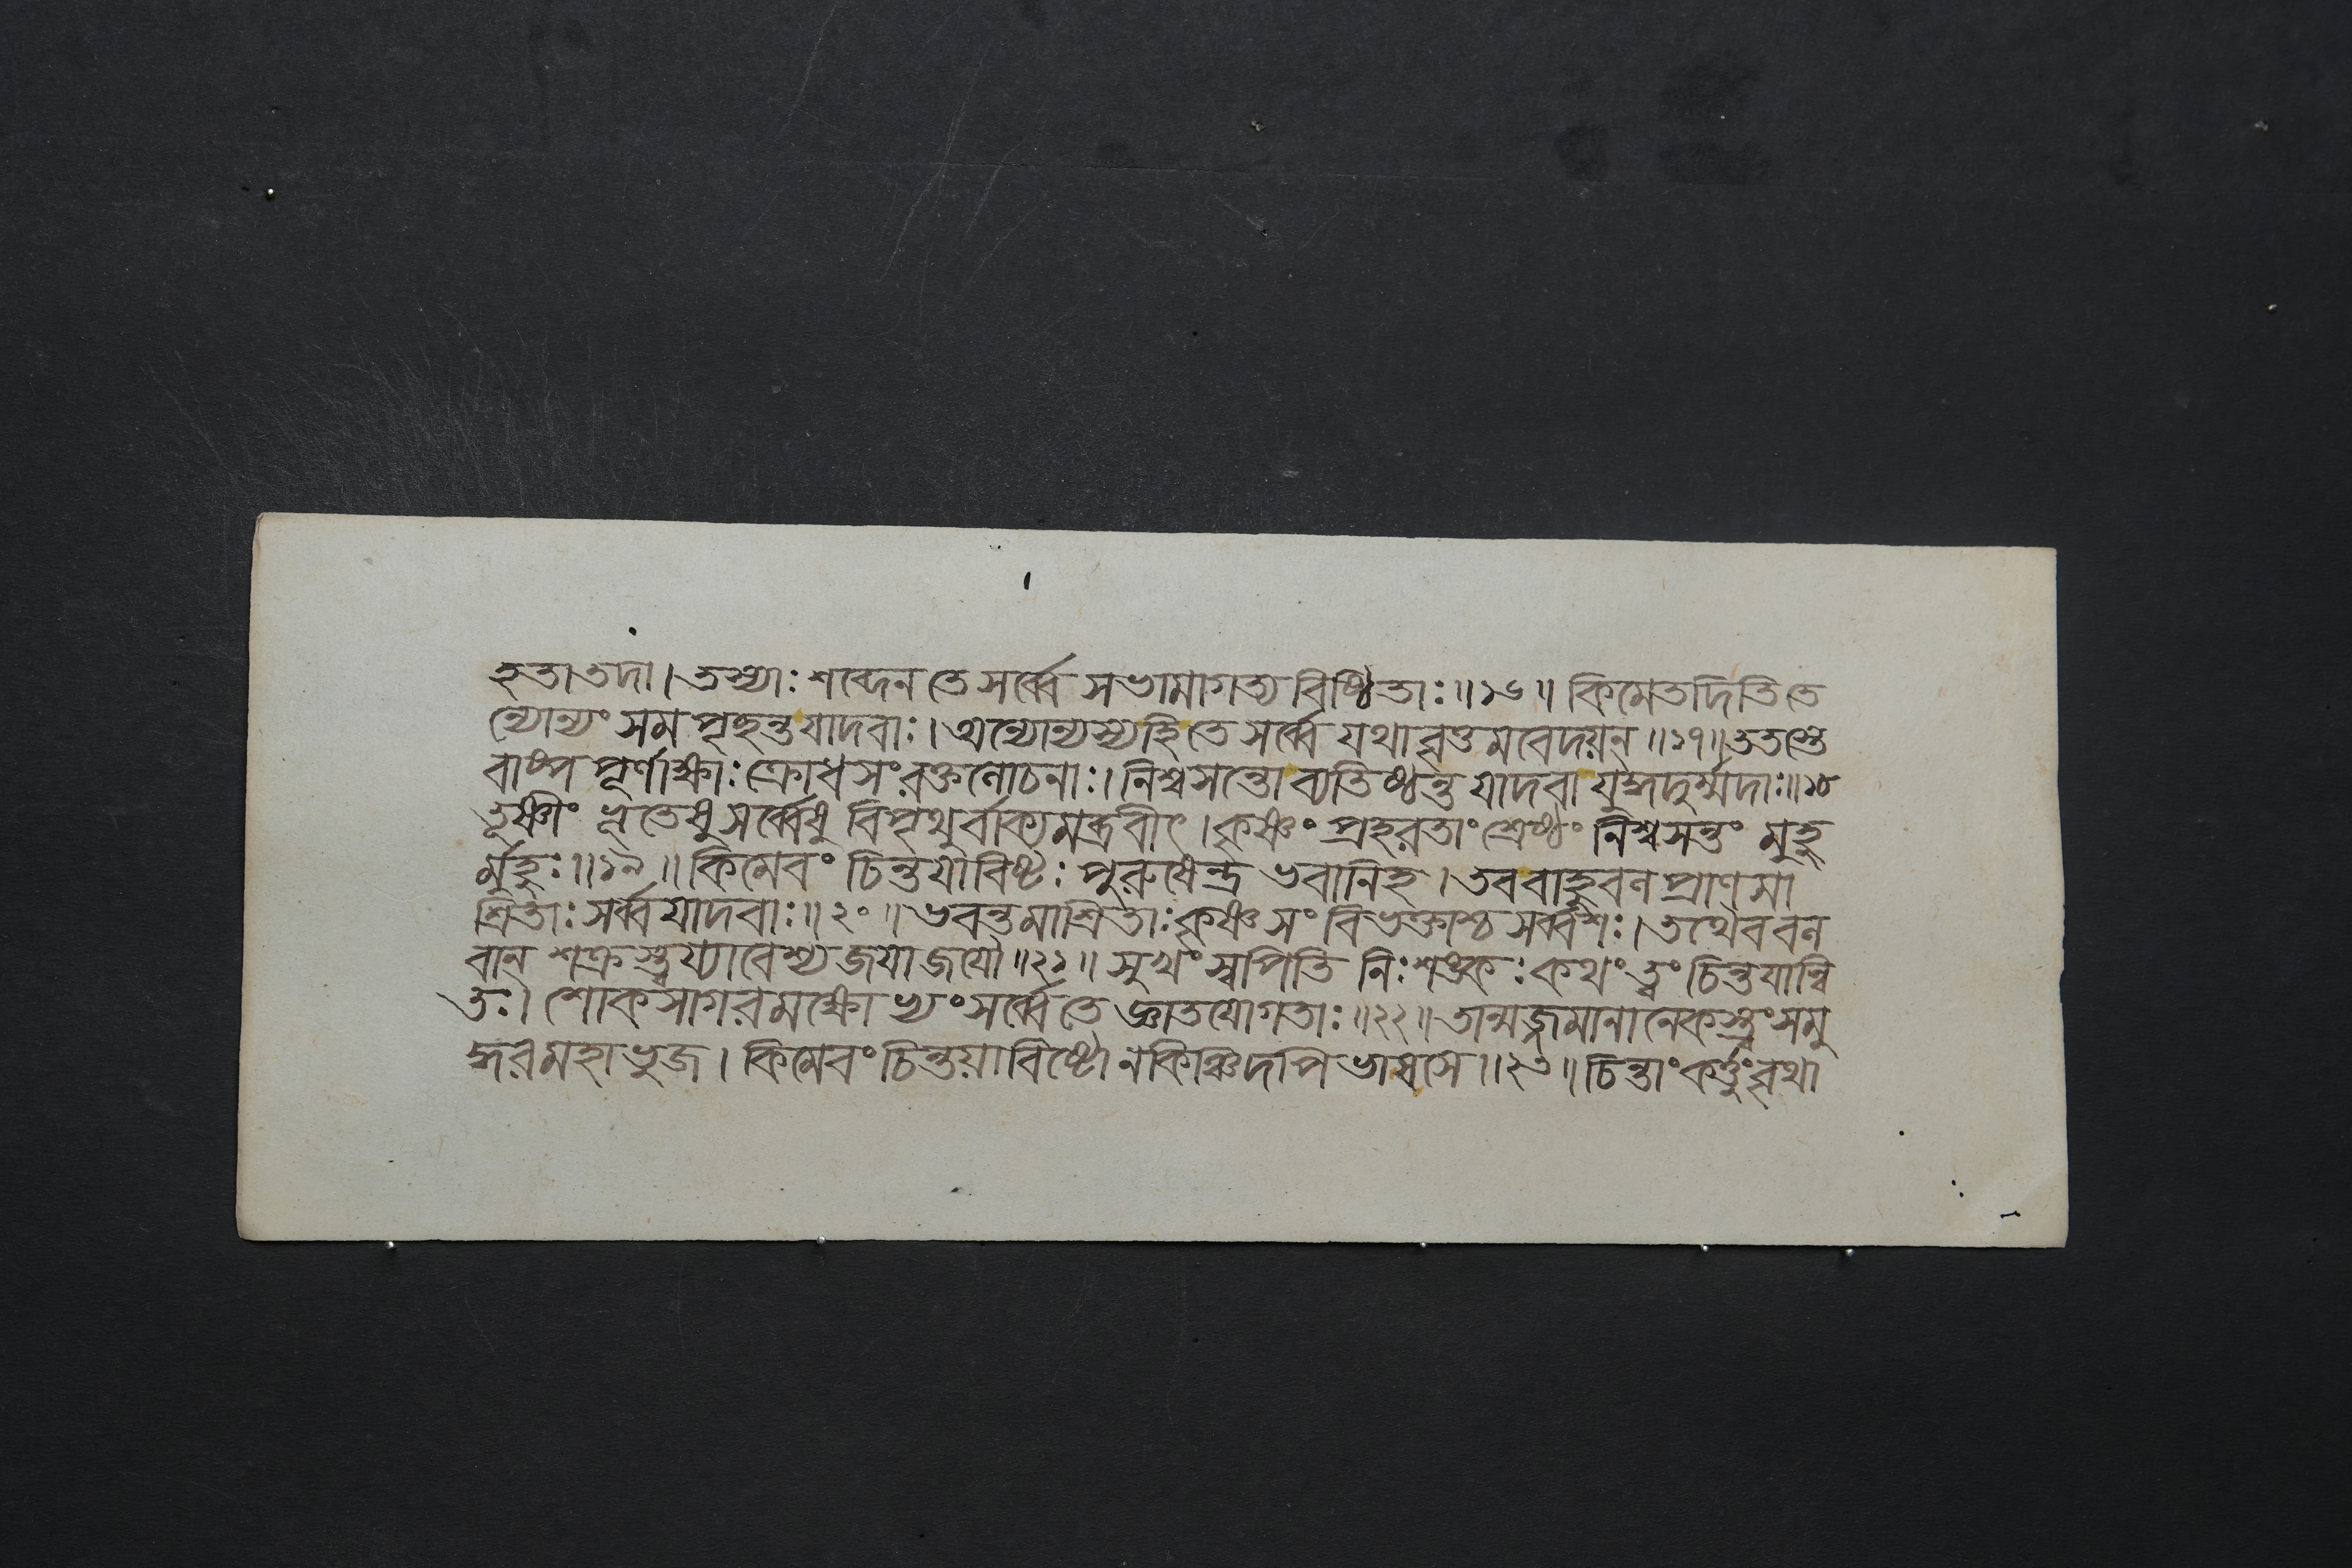 হতা তদা। তস্যাঃ শব্দেন তে সর্ব্বে সভামাগত্য বিষ্ঠিতাঃ॥১৬॥ কিমেতদিতি তে
ন্যোন্যং সমপৃছন্ত যাদবাঃ। অন্যোন্যস্য হি তে সর্ব্বে যথাবৃত্তমবেদয়ন্॥১৭॥ ততস্তে
বাষ্পপূর্ণাক্ষাঃ ক্রোধসংরক্তলোচনাঃ। নিশ্বসন্তো ব্যতিষ্ঠন্ত যাদবা যুদ্ধদুর্ম্মদাঃ॥১৮
তূষ্ণীং ভূতেষু সর্ব্বেষু বিপৃথুর্বাক্যমব্রবীৎ। কৃষ্ণং প্রহরতাং শ্রেষ্ঠং নিশ্বসন্তং মুহু
র্মুহুঃ॥১৯॥ কিমেবং চিন্তয়াবিষ্টঃ পুরুষেন্দ্র ভবানিহ। তব বাহুবলপ্রাণমা
শ্রিতাঃ সর্ব্বযাদবাঃ॥২০॥ ভবন্তমাশ্রিতাঃ কৃষ্ণ সংবিভক্তাশ্চ সর্ব্বশঃ। তথৈব বল
বান্ শক্রস্ত্বয্যাবেশ্য জয়াজয়ৌ॥২১॥ সুখং স্বপিতি নিঃশঙ্কঃ কথং ত্বং চিন্তয়ান্বি
তঃ। শোকসাগরমক্ষোভ্যং সর্ব্বে তে জ্ঞাতয়োগতাঃ॥২২॥ তান্মজ্জমানানেকস্ত্বং সমু
দ্ধর মহাভুজ। কিমেবং চিন্তয়াবিষ্টো ন কিঞ্চিদপি ভাষসে॥২৩॥ চিন্তাং কর্ত্তুং বৃথা